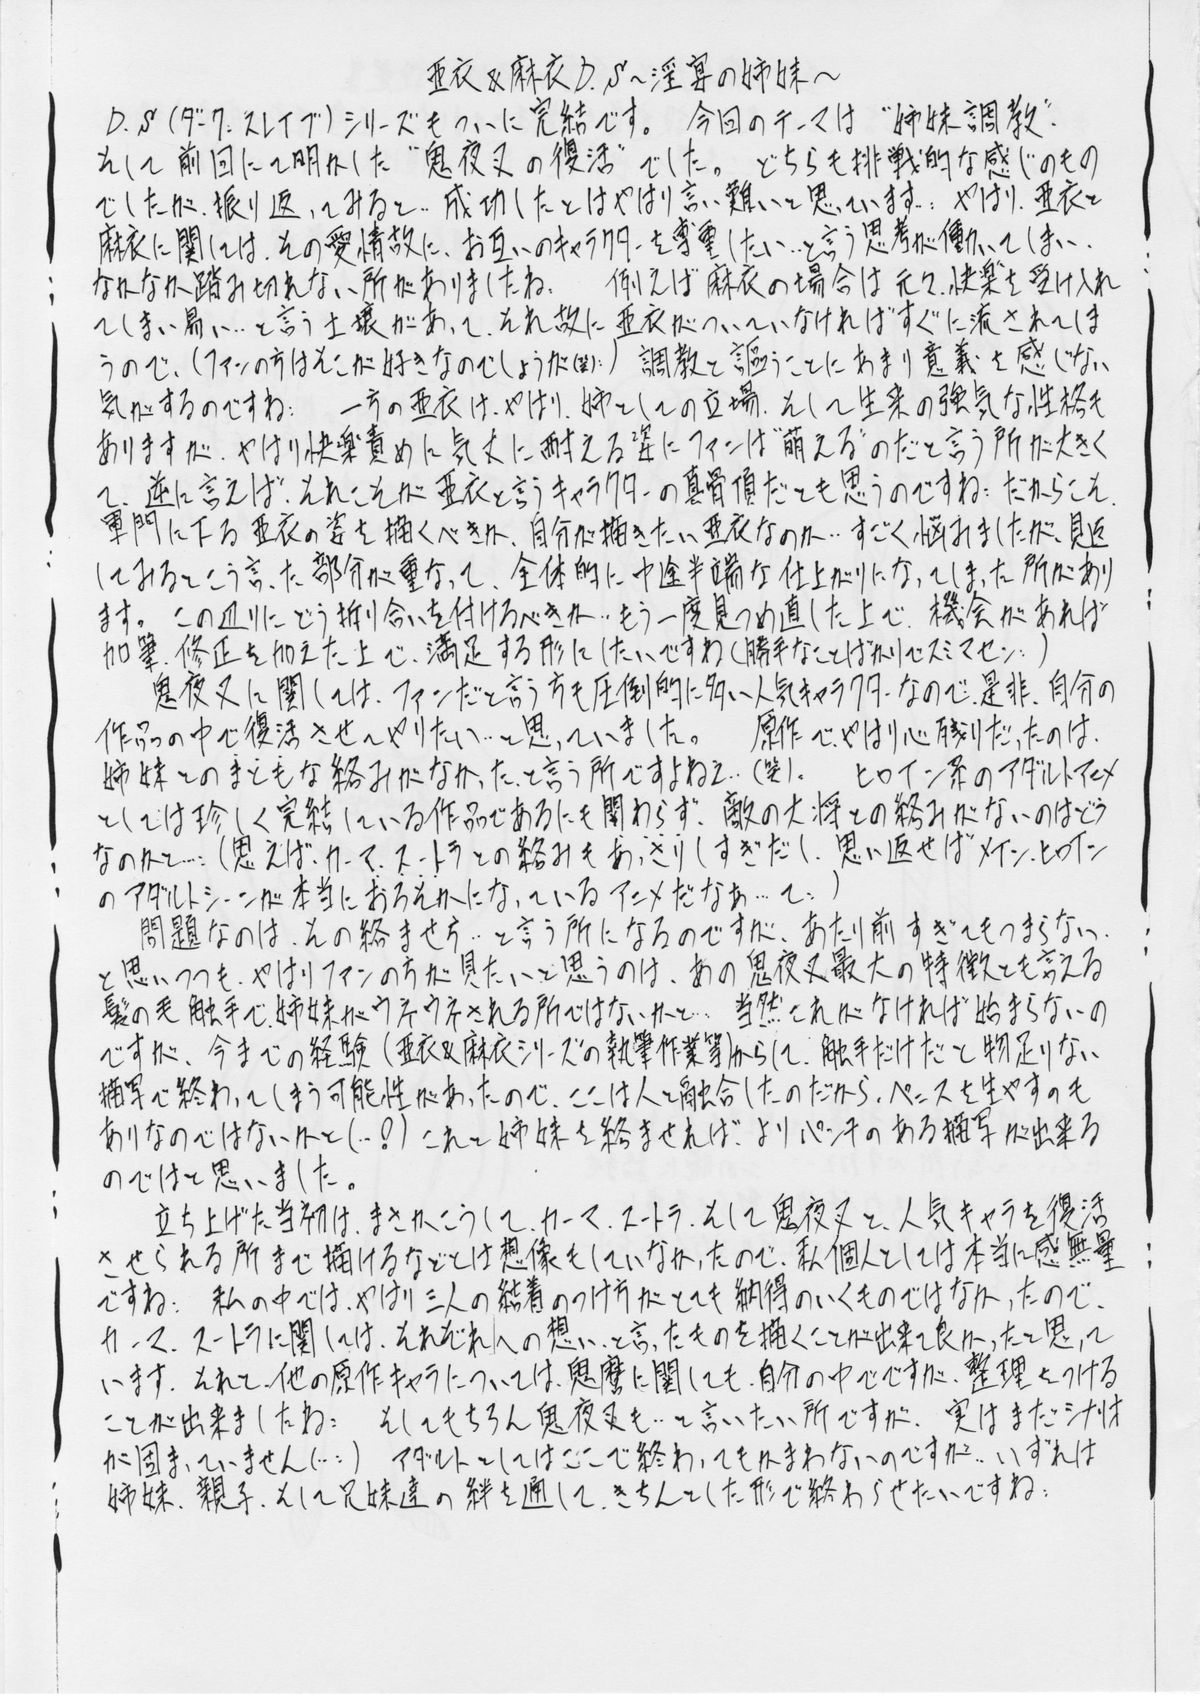 亜衣&麻衣D.S～淫宴の姉妹～
D.S(ダーク.スレイブ)シリーズもついに完結です。 今回のテーマは“姉妹調教”.
そして前回にて明かした“鬼夜叉の復活”でした。 どちらも挑戦的な感じのもの
でしたが.振り返ってみると‥成功したとはやはり言い難いと思っています‥: やはり.亜衣と
麻衣に関しては.その愛情故に、お互いのキャラクターを尊重したい‥と言う思考が働いてしまい.
なかなか踏み切れない所がありましたね. 例えば麻衣の場合は元々.快楽を受け入れ
てしまい易い‥と言う土壌があって.それ故に亜衣がついていなければすぐに流されてしま
うので、(ファンの方はそこが好きなのでしょうが(笑):)調教と謳うことにあまり意義を感じない
気がするのですね: 一方の亜衣は.やはり.姉としての立場.そして生来の強気な性格も
ありますが.やはり快楽責めに気丈に耐える姿にファンは“萌える”のだと言う所が大きく
て、逆に言えば.それこそが亜衣と言うキャラクターの真骨頂だとも思うのですね:だからこそ.
軍門に下る亜衣の姿を描くべきか、自分が描きたい亜衣なのか‥すごく悩みましたが、見返
してみるとこう言った部分が重なって、全体的に中途半端な仕上がりになってしまった所があり
ます。 この辺りにどう折り合いを付けるべきか‥もう一度見つめ直した上で.機会があれば
加筆.修正を加えた上で、満足する形にしたいですね(勝手なことばかりでスミマセン:)
鬼夜叉に関しては、ファンだと言う方も圧倒的に多い人気キャラクターなので、是非.自分の
作品の中で復活させてやりたい‥と思っていました。 原作で.やはり心残りだったのは.
姉妹とのまともな絡みがなかった.と言う所ですよねえ‥(笑)。 ヒロイン系のアダルトアニメ
としては珍しく完結している作品であるにも関わらず、敵の大将との絡みがないのはどう
なのかと…:(思えば.カーマ.スートラとの絡みもあっさりしすぎだし.思い返せばメイン.ヒロイン
のアダルトシーンが本当におろそかになっているアニメだなぁ…て:)
問題なのは.その絡ませ方‥と言う所になるのですが、あたり前すぎてもつまらない.
と思いつつも.やはりファンの方が見たいと思うのは、あの鬼夜叉最大の特徴とも言える
髪の毛触手で、姉妹がウネウネされる所ではないかと… 当然これがなければ始まらないの
ですが、今までの経験(亜衣&麻衣シリーズの執筆作業等)からして.触手だけだと物足りない
描写で終わってしまう可能性があったので、ここは人と融合したのだから.ペニスを生やすのも
ありなのではないかと(‥?)これで姉妹を絡ませれば、よりパンチのある描写が出来る
のではと思いました。
立ち上げた当初は.まさかこうして.カーマ.スートラ.そして鬼夜叉と、人気キャラを復活
させられる所まで描けるなどとは想像もしていなかったので、私個人としては本当に感無量
ですね: 私の中では.やはり三人の結着のつけ方がとても納得のいくものではなかったので、
カーマ.スートラに関しては、それぞれへの想い.と言ったものを描くことが出来て良かったと思って
います.それと.他の原作キャラについては.鬼麿に関しても.自分の中でですが.整理をつける
ことが出来ましたね: そしてもちろん鬼夜叉も‥と言いたい所ですが、実はまだシナリオ
が固まっていません(…:) アダルトとしてはここで終わってもかまわないのですが‥いずれは
姉妹.親子.そして兄妹達の絆を通して.きちんとした形で終わらせたいですね: